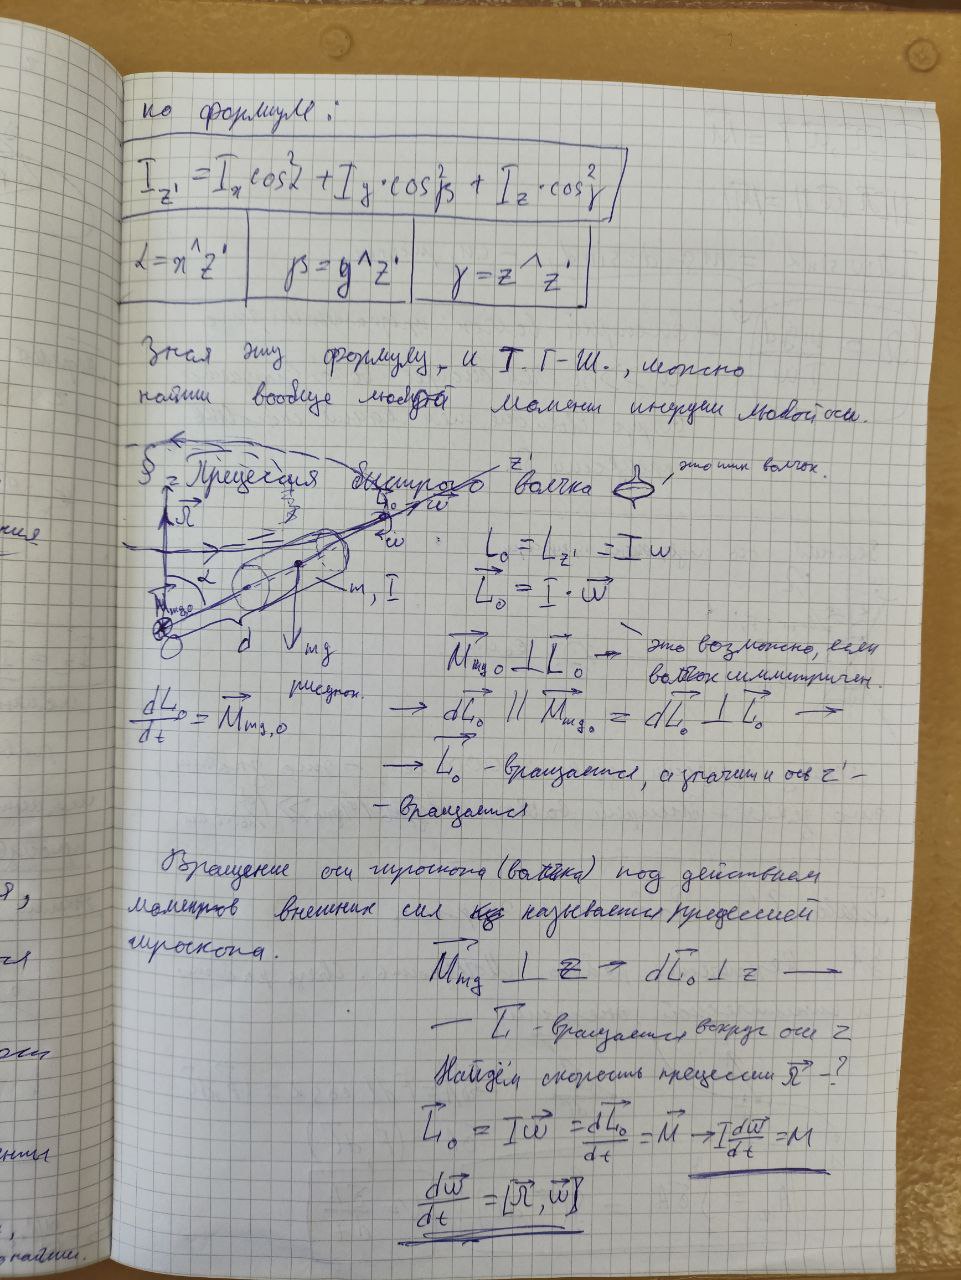 по формуле:
I_z' = I_x cos²α + I_y · cos²β + I_z · cos²γ
α = x^z' β = y^z' γ = z^z'
Зная эту формулу, и Т. Г-Ш., можно
найти вообще любой момент инерции любой оси.
§ = Прецессия быстрого волчка
это тип волчок.
z'
L₀
ω
Ω
α
ω
m, I
M_mg,0
O
d
mg
рисунок.
L₀ = L_z' = Iω
L₀ = I · ω
это возможно, если
волчок симметричен.
M_mg0 ⊥ L₀ →
dL₀/dt = M_mg,0
→ dL₀ || M_mg0 = dL₀ ⊥ L₀ →
→ L₀ - вращается, а значит и ось z' -
- вращается
Вращение оси гироскопа (волчка) под действием
моментов внешних сил называется прецессией
гироскопа.
M_mg ⊥ z → dL₀ ⊥ z —
— L - вращается вокруг оси z
Найдём скорость прецессии Ω - ?
L₀ = Iω = dL₀/dt = M → I dω/dt = M
dω/dt = [Ω, ω]
ния
я,